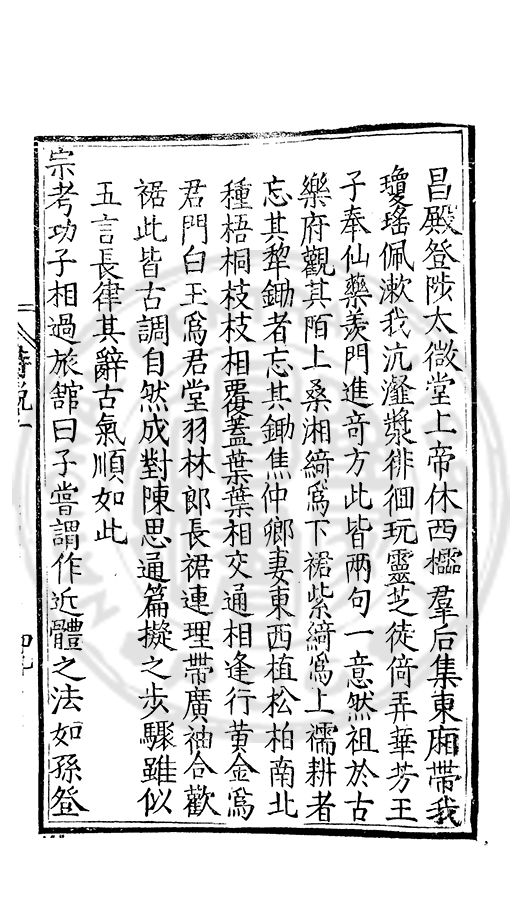 昌殿登陟太微堂上帝休西櫺羣后集東廂帶我
瓊瑤佩漱我沆瀣漿徘徊玩靈芝徒倚弄華芳王
子奉仙藥羨門進奇方此皆兩句一意然祖於古
樂府觀其陌上桑湘綺爲下裙紫綺爲上襦耕者
忘其犂鋤者忘其鋤焦仲卿妻東西植松柏南北
種梧桐枝枝相覆蓋葉葉相交通相逢行黃金爲
君門白玉爲君堂羽林郎長裾連理帶廣袖合歡
裾此皆古調自然成對陳思通篇擬之步驟雖似
五言長律其辭古氣順如此
宗考功子相過旅館曰子嘗謂作近體之法如孫登